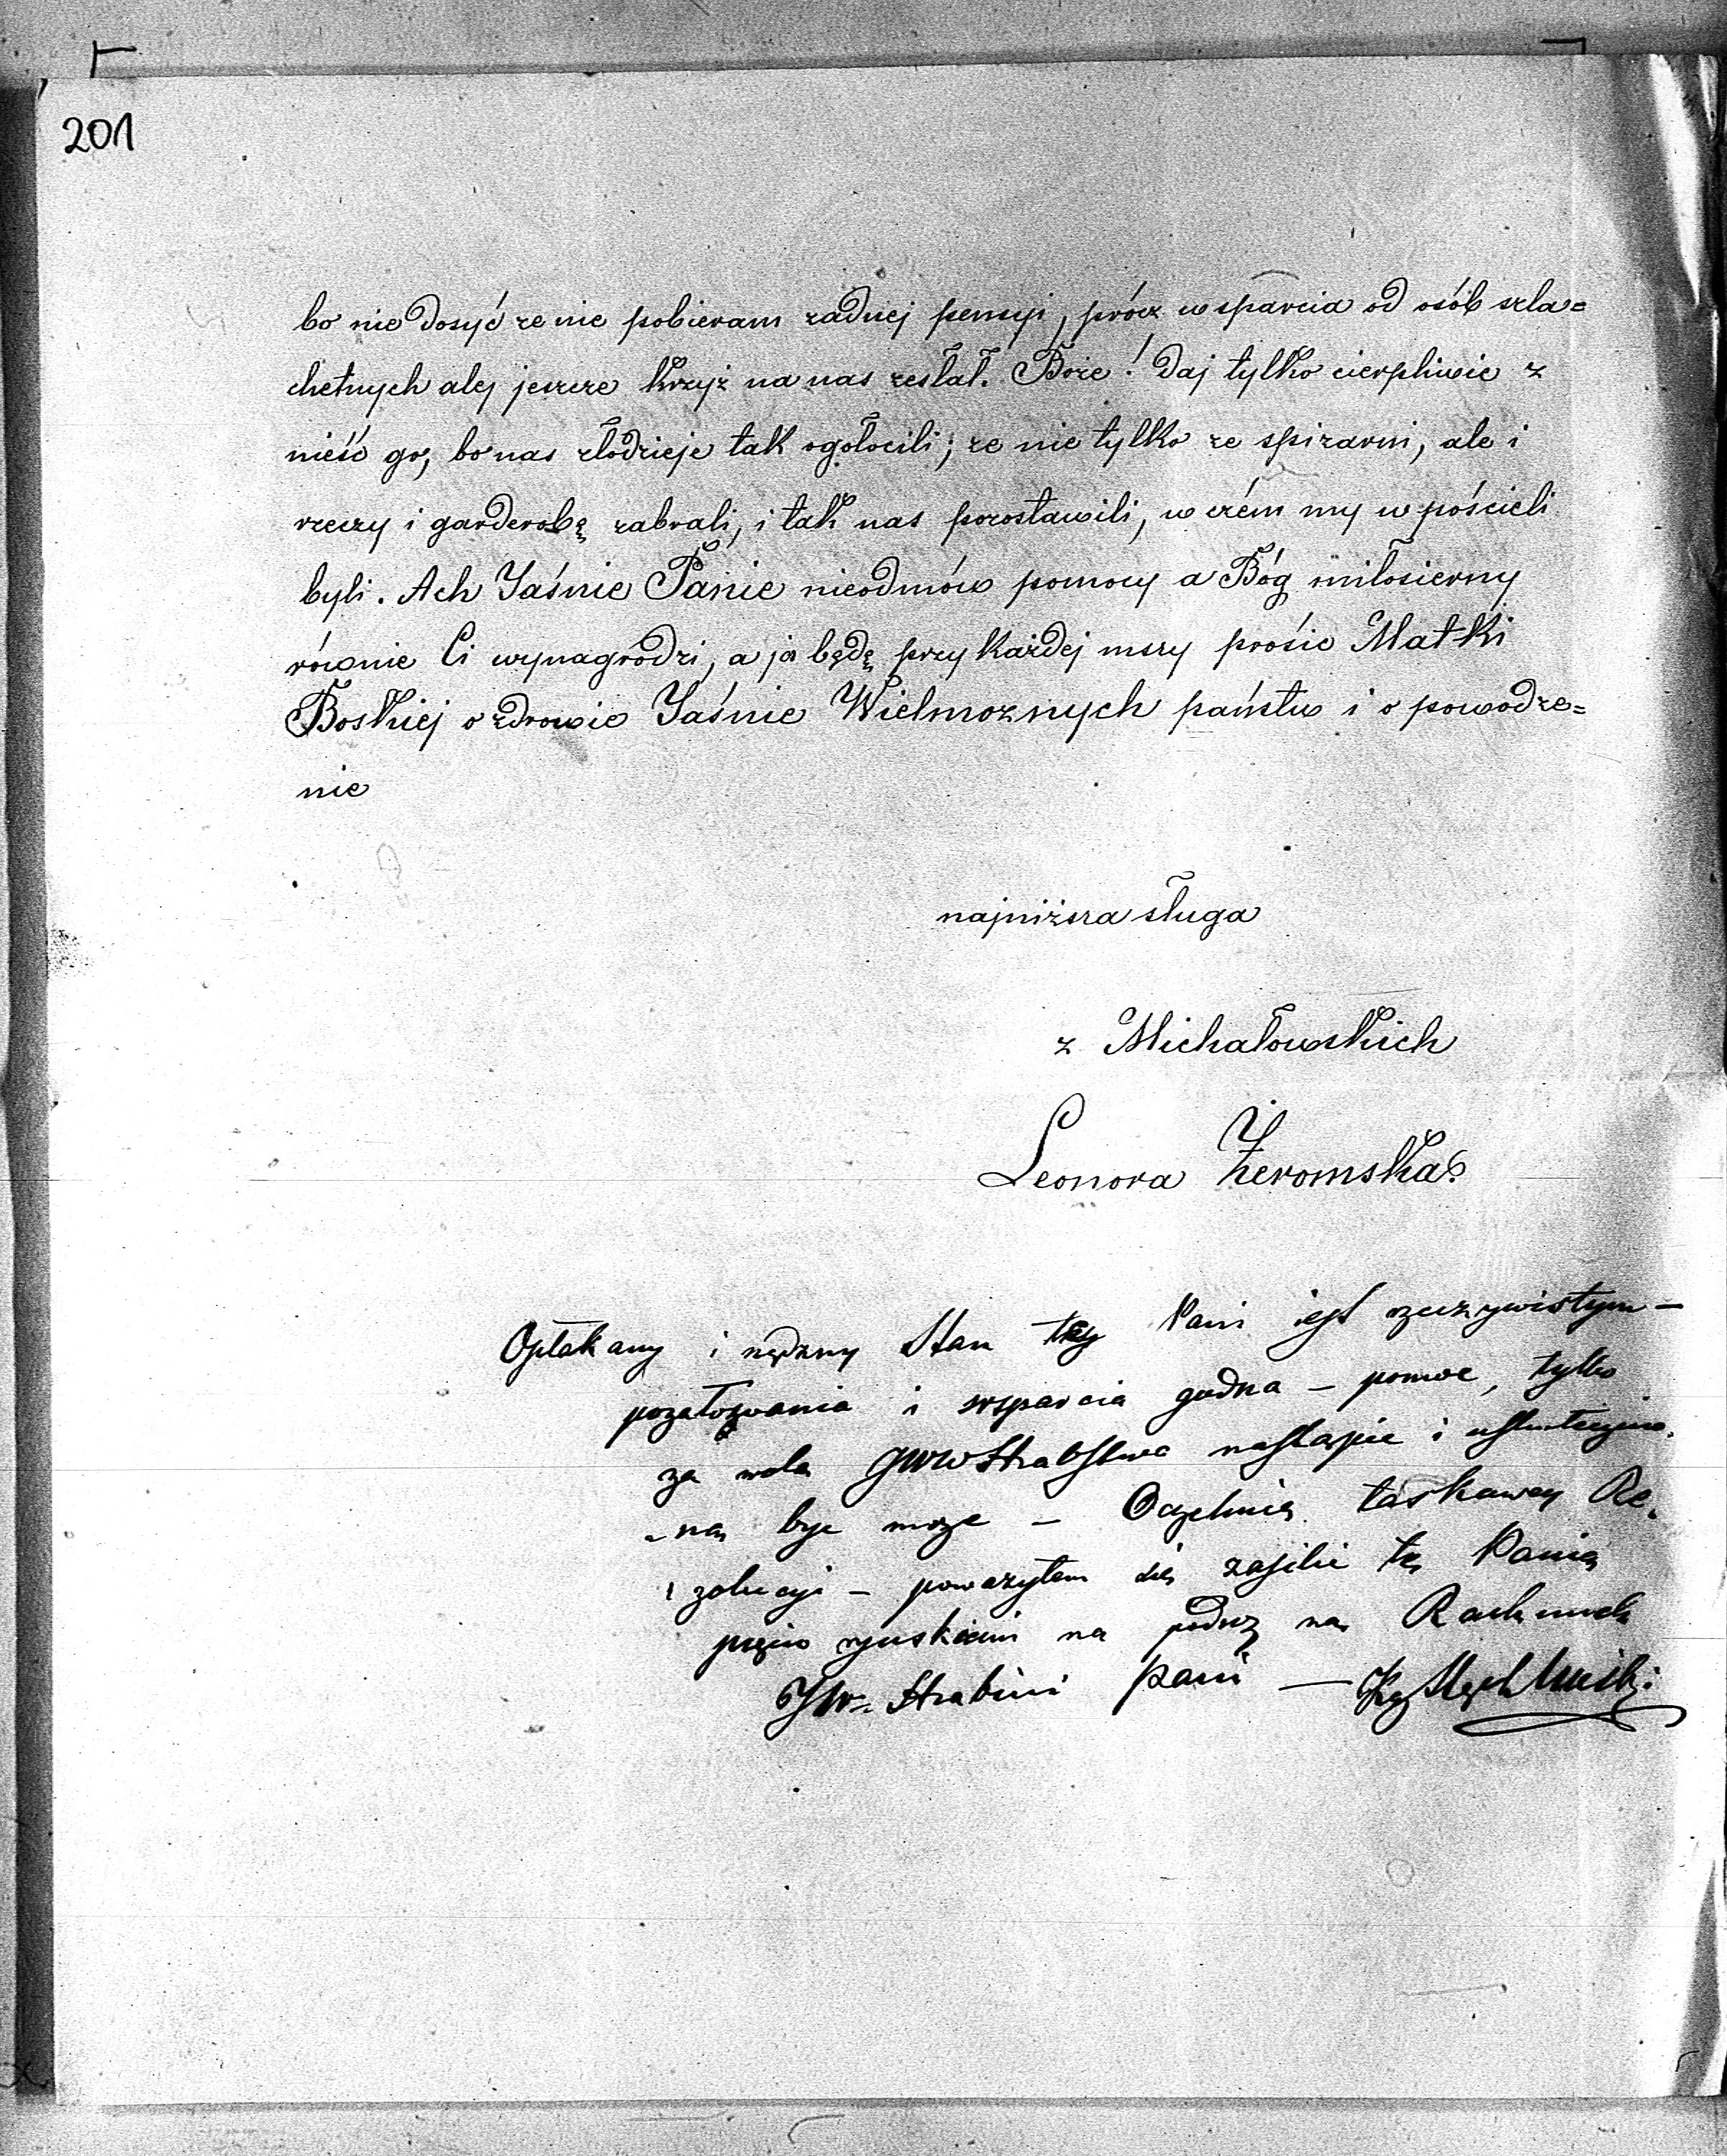 201
bo nie dosyć ze nie pobieram zadnej pensyi, prócz wsparcia od osób szla=
chetnych alej jeszcze krzyż na nas zesłał. Boże! daj tylko cierpliwie z
nieść go, bo nas złodzieje tak ogołocili; ze nie tylko ze spizarni, ale i
rzeczy i garderobę zabrali, i tak nas pozostawili, w czém my w pościeli
byli. Ach Jaśnie Panie nieodmów pomocy a Bóg miłosierny
równie Ci wynagrodzi, a ja będę przy każdej mszy prosić Matki
Boskiej o zdrowie Jaśnie Wielmoznych państw i o powodze=
nie
najniższa sługa
z Michałowskich
Leonora Żeromska
Opłakany i nędzny Stan tey Pani jest rzeczywistym —
pozałowania i wsparcia godna — pomoc, tylko
za wolą JWW Hrabstwa nastąpić i
ną być moze — Oczekuię łaskawey Re-
zolucyi — poważyłem się zasilić tę Panią
pięcio ryńskiemi na
JW. Hrabini Pani —